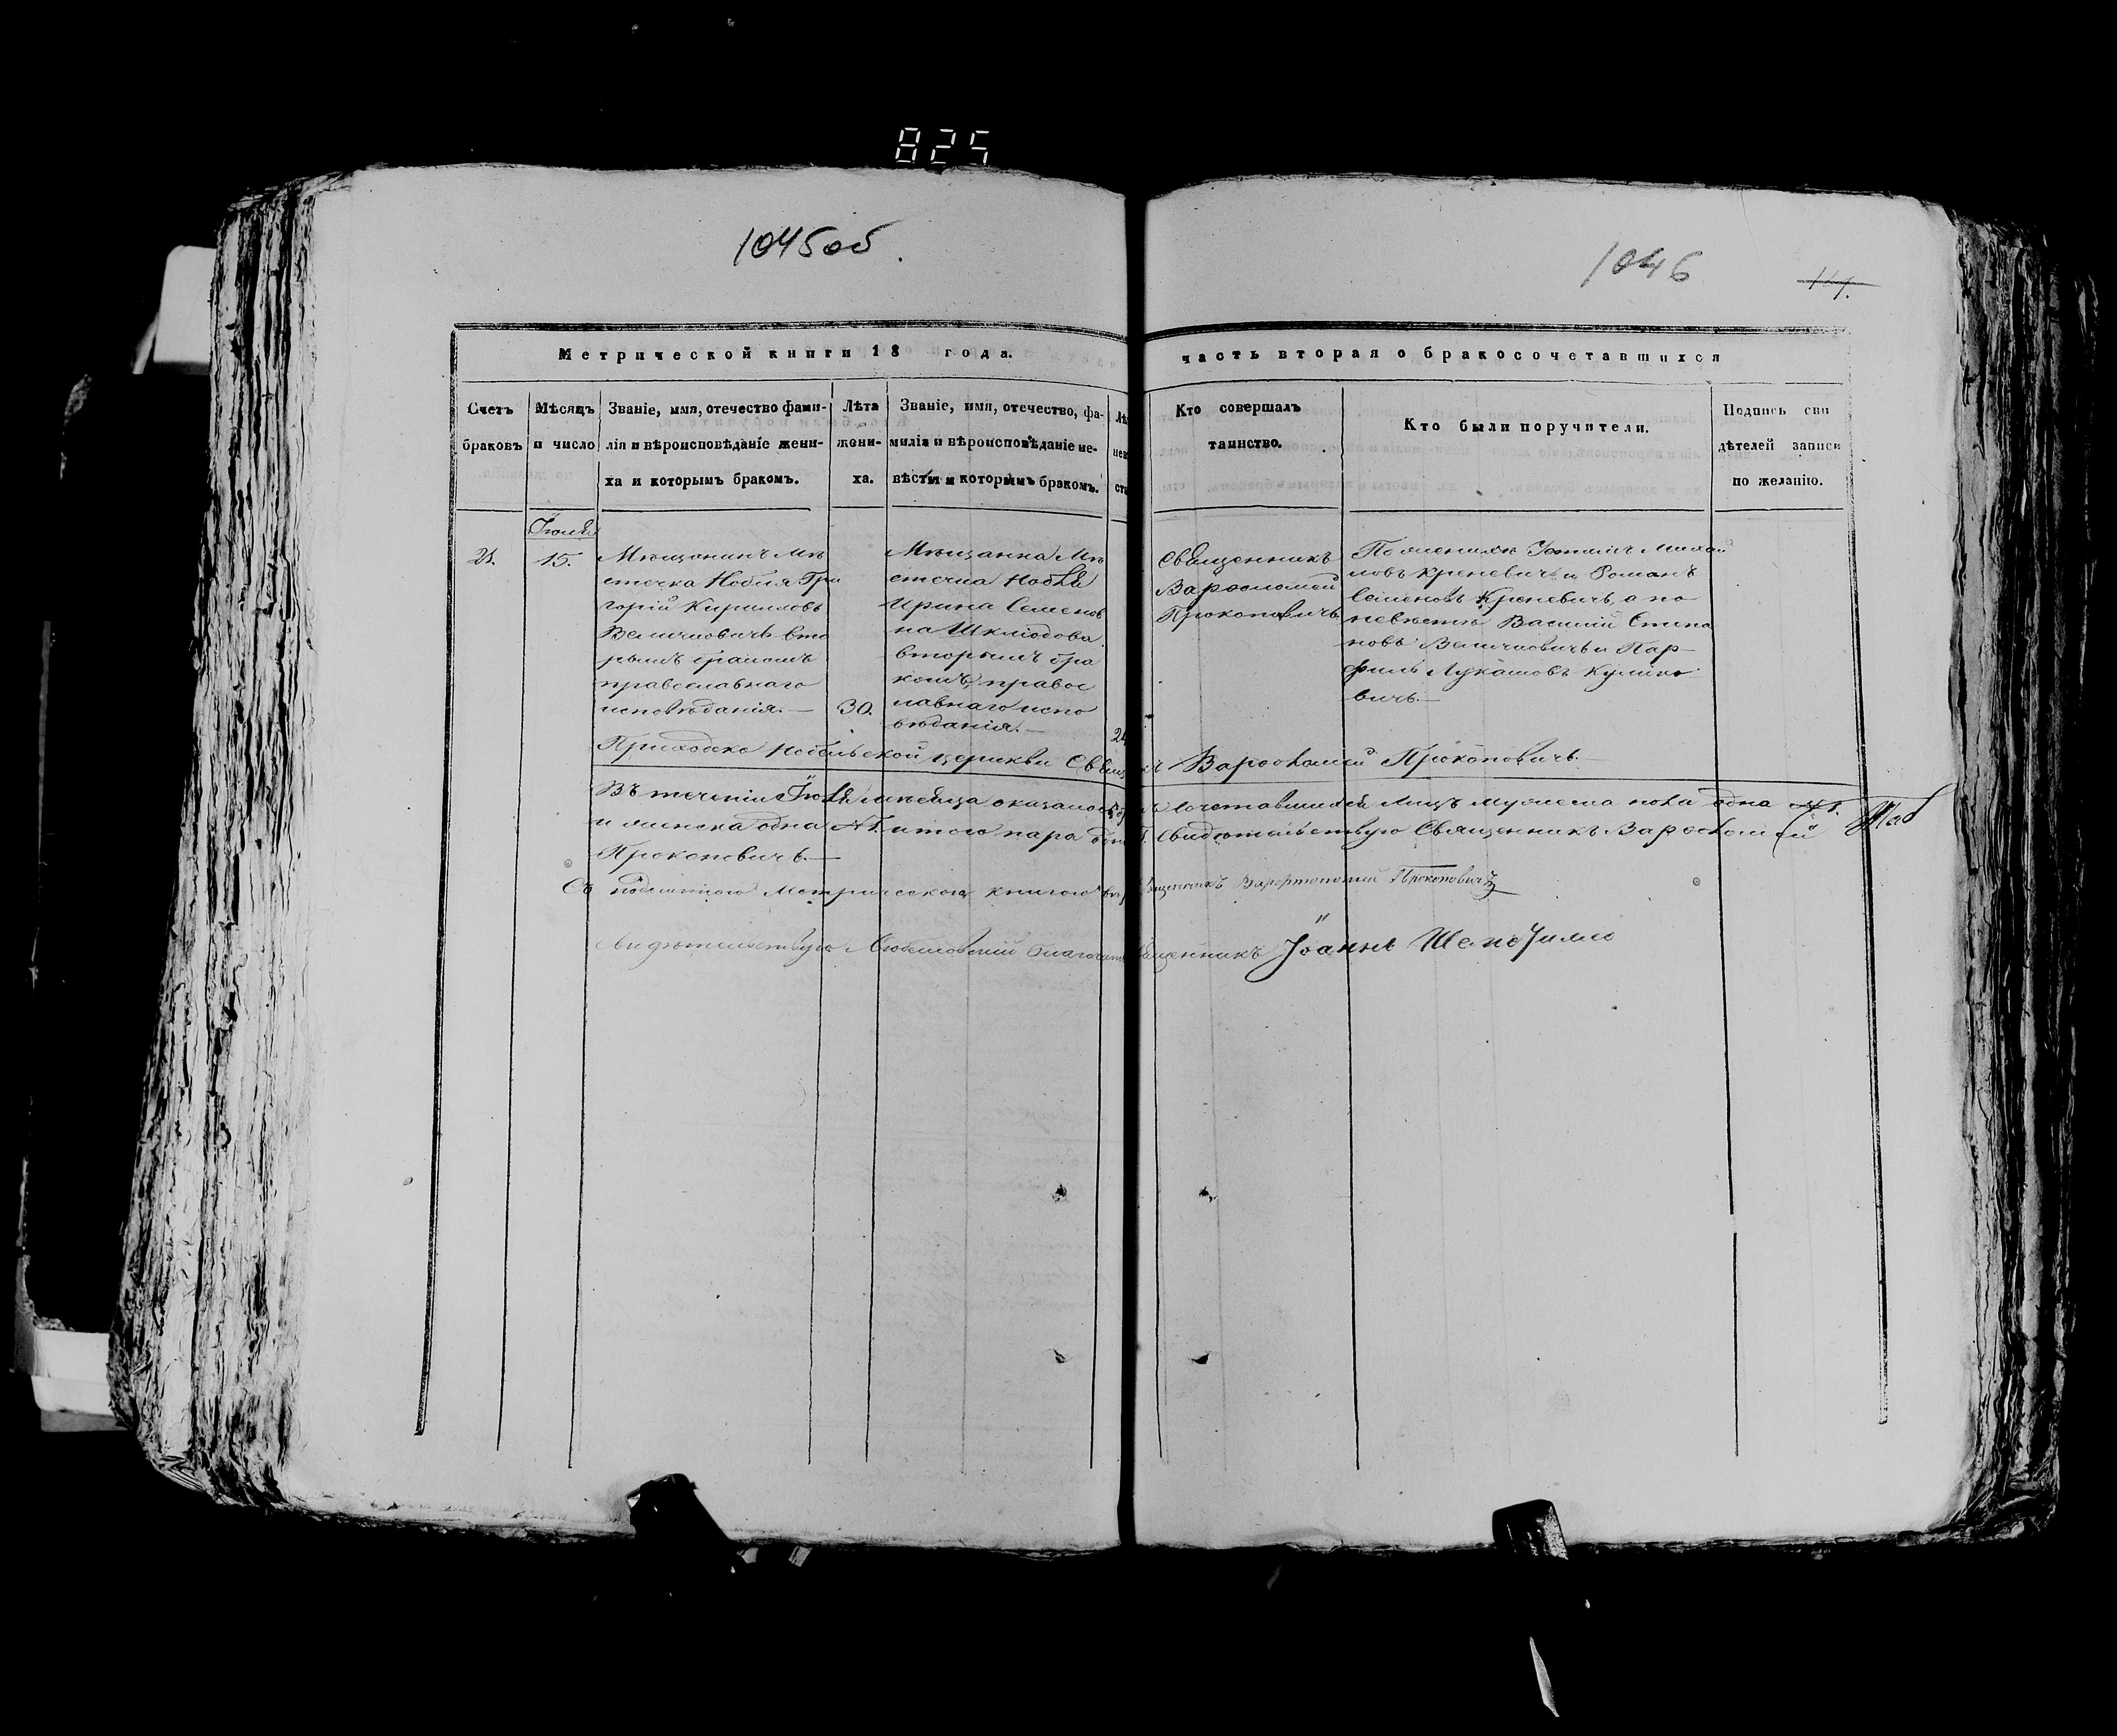 825
1045об.
1046
Метрической книги 18 года.
часть вторая о бракосочетавшихся
Счетъ
браковъ
Мѣсяцъ
и число
Званіе, имя, отечество фами-
лія и вѣроисповѣданіе жени-
ха и которымъ бракомъ.
Лѣта
жени-
ха.
Званіе, имя, отечество, фа-
милія и вѣроисповѣданіе не-
вѣсты и которымъ бракомъ.
Кто совершалъ
таинство.
Кто были поручители.
Подпись сви
дѣтелей записи
по желанію.
Іюля
21.
15.
Мѣщанинъ мѣ
стечка Нобля Гри
горій Кириловъ
Величковичъ вто
рымъ бракомъ
православнаго
исповѣданія.—
30.
Мѣщанка мѣ
стечка Нобля
Ирина Семенов
на Шклюдова
вторымъ бра
комъ, правос
лавнаго испо
вѣданія.—
24
Священникъ
Варфоломей
Прокоповичъ
По женихѣ Михай
ловъ Креневичъ и Романъ
Семеновъ Креневичъ, а по
невѣстѣ Василій Степа
новъ Величковичъ и Пар-
филъ Лукашовъ Кулико
вичъ.—
Приходско Нобельской церкви Варфоломей Прокоповичъ.—
Въ теченіи Іюля мѣсяца оказалось сочетавшихся лицъ мужеска пола одна №1.
и женска одна №1. итого пара Свидѣтельствую Священникъ Варфоломей
Прокоповичъ.—
Съ подлинною Метрическою книгою Варфоломей Прокоповичъ
Свидѣтельствую Любешовскій Іоаннъ